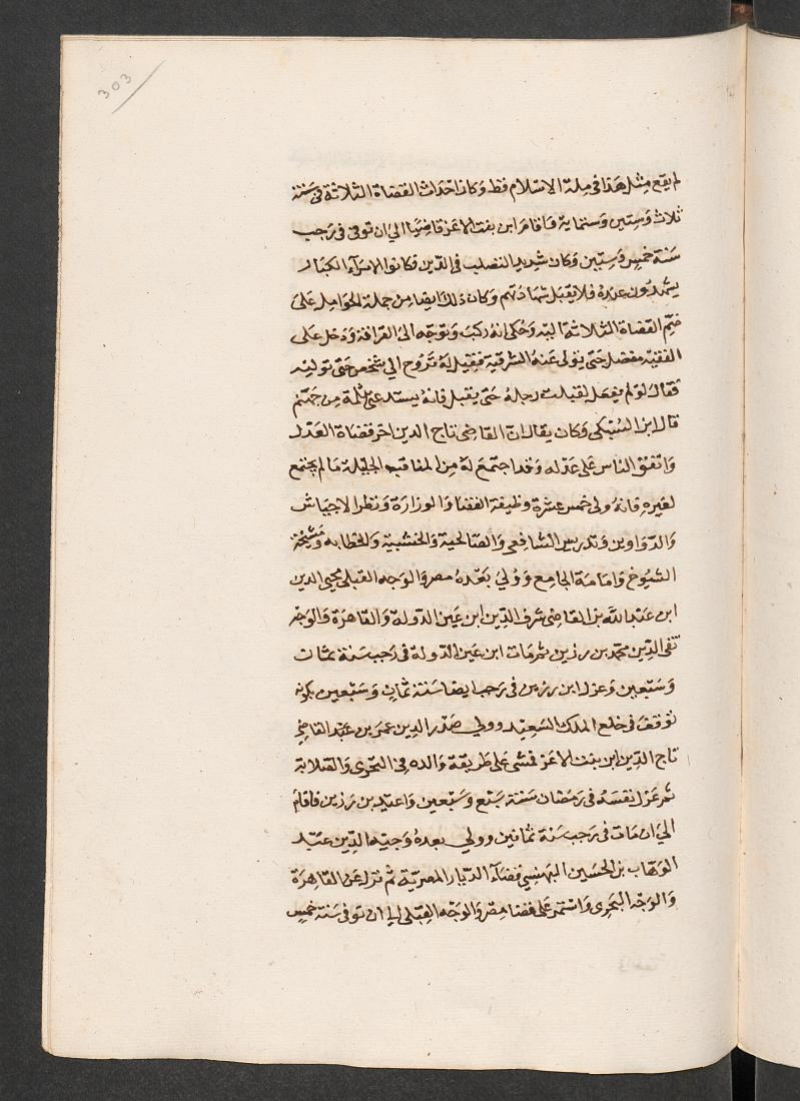 303
لم يقع مثل هذا في ملة الاسلام قط وكان احداث القضاة الثلاثة في سنة
ثلاث وستين وستماية واقام ابن بنت الاعز قاضيا الي ان توفي في رجب
سنة خمس وستين وكان شديد التصلب في الدين فكانوا الامرآء الكبار
يشهدون عنده فلا يقبل شهادتهم وكان ذلك ايضا من جملة الحوامل على
ضم القضاة الثلاثة اليه وحكى انه ركب وتوجه الى القرافة ودخل على
الفقيه مفضل حتى يولى عنه الشرقية فقيل له تروح الي شخص حتى توليه
فقال لو لم يفعل لقبلت رجله حتى يقبل فانه يسد عنى ثلمة من جهنم
قال ابن السبكى وكان يقال ان القاضى تاج الدين اخر قضاة العدل
واتفق الناس على عدله وقد اجتمع له من المناقب الجليلة ما لم يجتمع
لغيره فانه ولى خمس عشرة وظيفة القضا والوزارة ونظر الاحباش
والدواوين وتدريس الشافعى والصالحية والخشبية والخطابه ومشيخة
الشيوخ وامامة الجامع وولي بعده مصر والوجه القبلى محيى الدين
ابن عبد الله بن القاضى شرف الدين ابن عين الدولة والقاهرة والوجه
تقى الدين محمد بن رزين ثم مات ابن عين الدولة في رجب سنة ثمان
وسبعين وعزل ابن رزين في رجب ايضا سنة ثمان وسبعين بكونه
توقف في خلع الملك السعيد وولي صدر الدين عمر بن عبد القاضي
تاج الدين ابن بنت الاعز فمشى على طريقة والده في التحرى والصلابة
ثم عزل نفسه في رمضان سنة سبع وسبعين واعيد بن رزين فاقام
الي ان مات في رجب سنة ثمانين وولي بعده وجيه الدين عبد
الوهاب بن الحسين البهنسي قضاء الديار المصرية ثم نزل عن القاهرة
والوجه البحرى واستمر على قضا مصر والوجه القبلى الي ان توفى سنة خمس